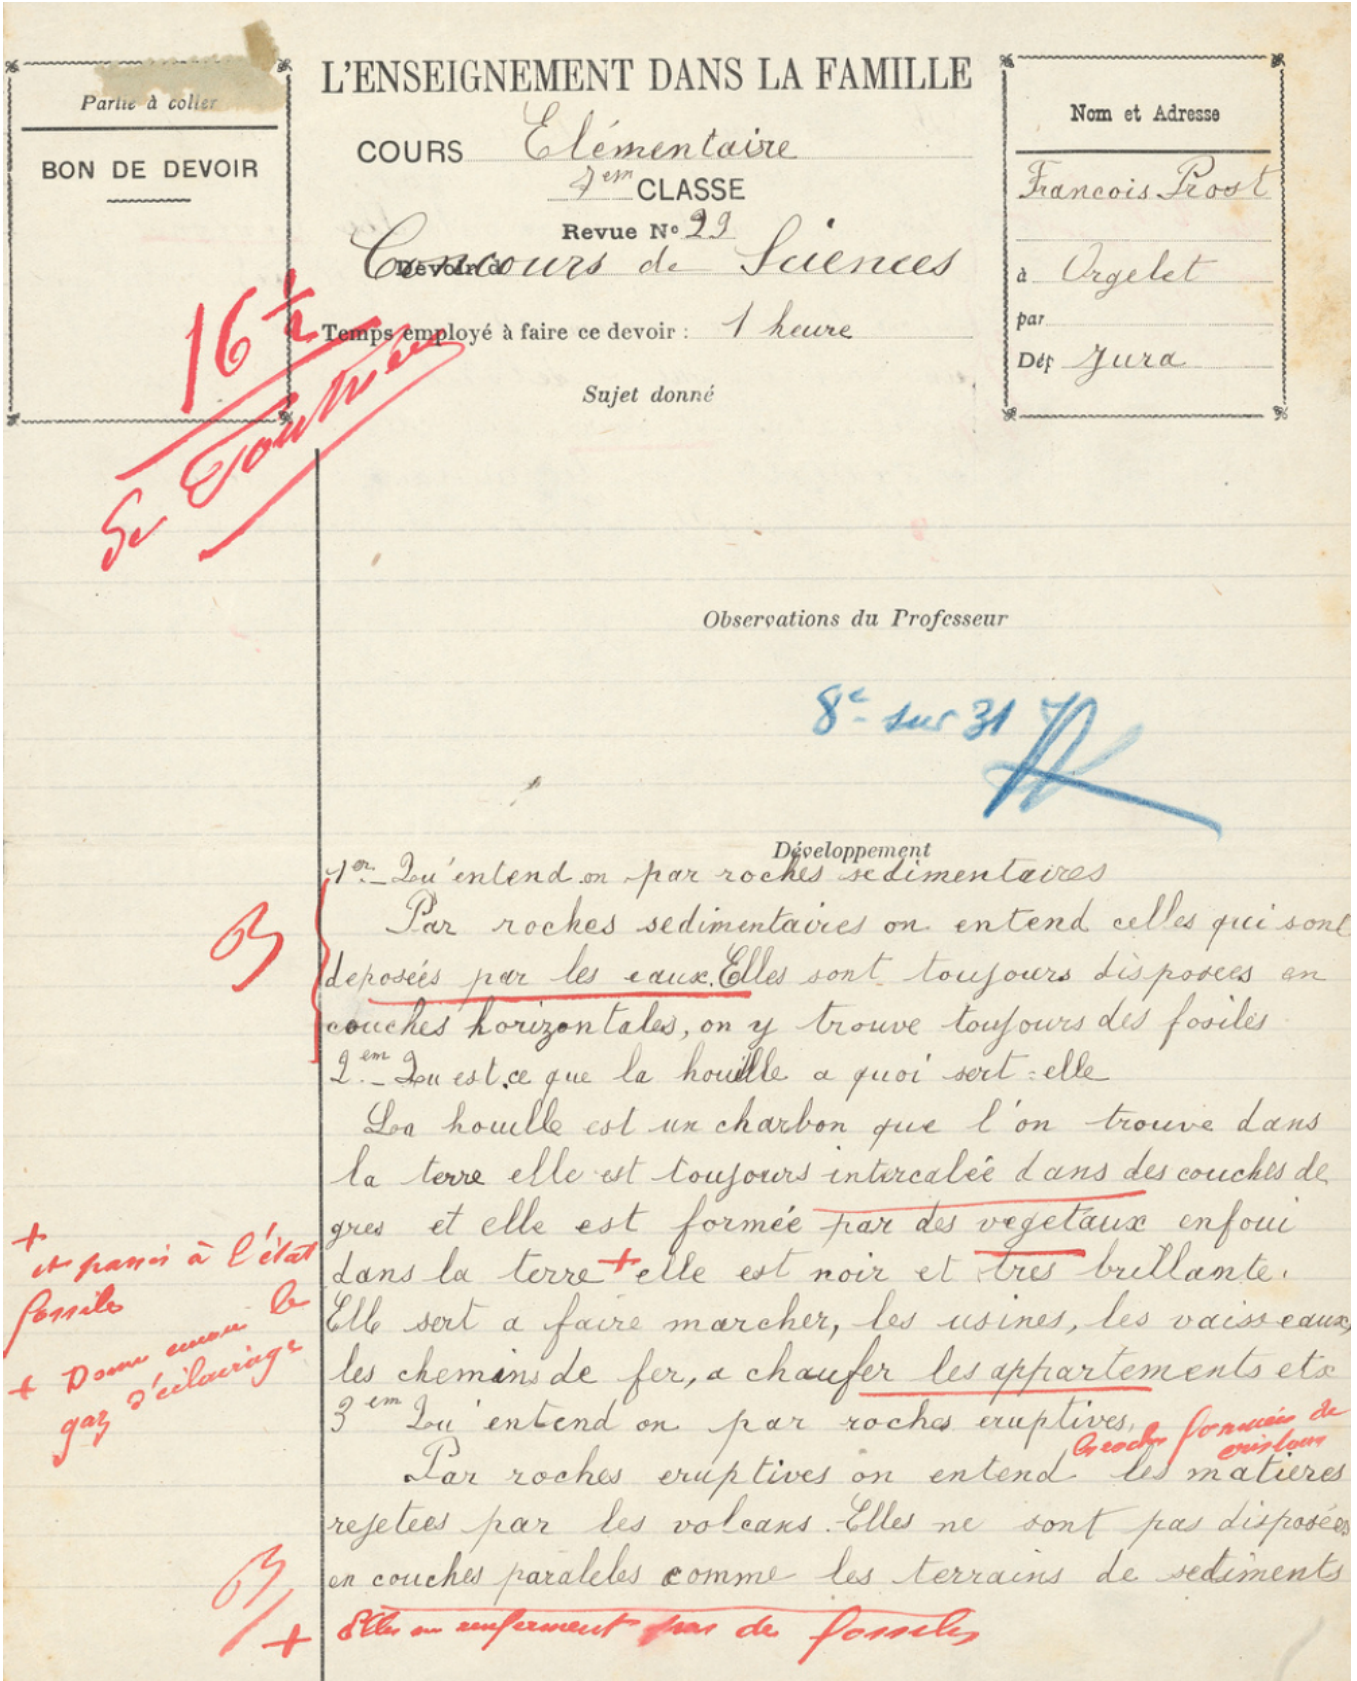 Partie à coller
BON DE DEVOIR
L'ENSEIGNEMENT DANS LA FAMILLE
COURS Elémentaire
7em CLASSE
Revue No 29
Devoir d
Concours de Sciences
Temps employé à faire ce devoir : 1 heure
Sujet donné
Nom et Adresse
Francois Prost
à Orgelet
par
Dép Jura
16 1/2
Observations du Professeur
8e sur 31
Développement
1er_ Qu'entend on par roches sedimentaires
B
Par roches sedimentaires on entend celles qui sont
deposées par les eaux. Elles sont toujours disposees en
couches horizontales, on y trouve toujours des fosiles
2em_ Qu est ce que la houille a quoi sert-elle
La houille est un charbon que l'on trouve dans
la terre elle est toujours intercalée dans des couches de
gres et elle est formée par des vegetaux enfoui
dans la terre + elle est noir et tres brillante.
+ et passés à l'état
fossile
Elle sert a faire marcher, les usines, les vaisseaux,
les chemins de fer, a chaufer les appartements etc
+ Donne encore le
gaz d'éclairage
3em Qu'entend on par roches eruptives,
les roches formées de
cristaux
Par roches eruptives on entend les matieres
rejetees par les volcans. Elles ne sont pas disposées
en couches paraleles comme les terrains de sediments
B
+ Elles ne renferment pas de fossiles